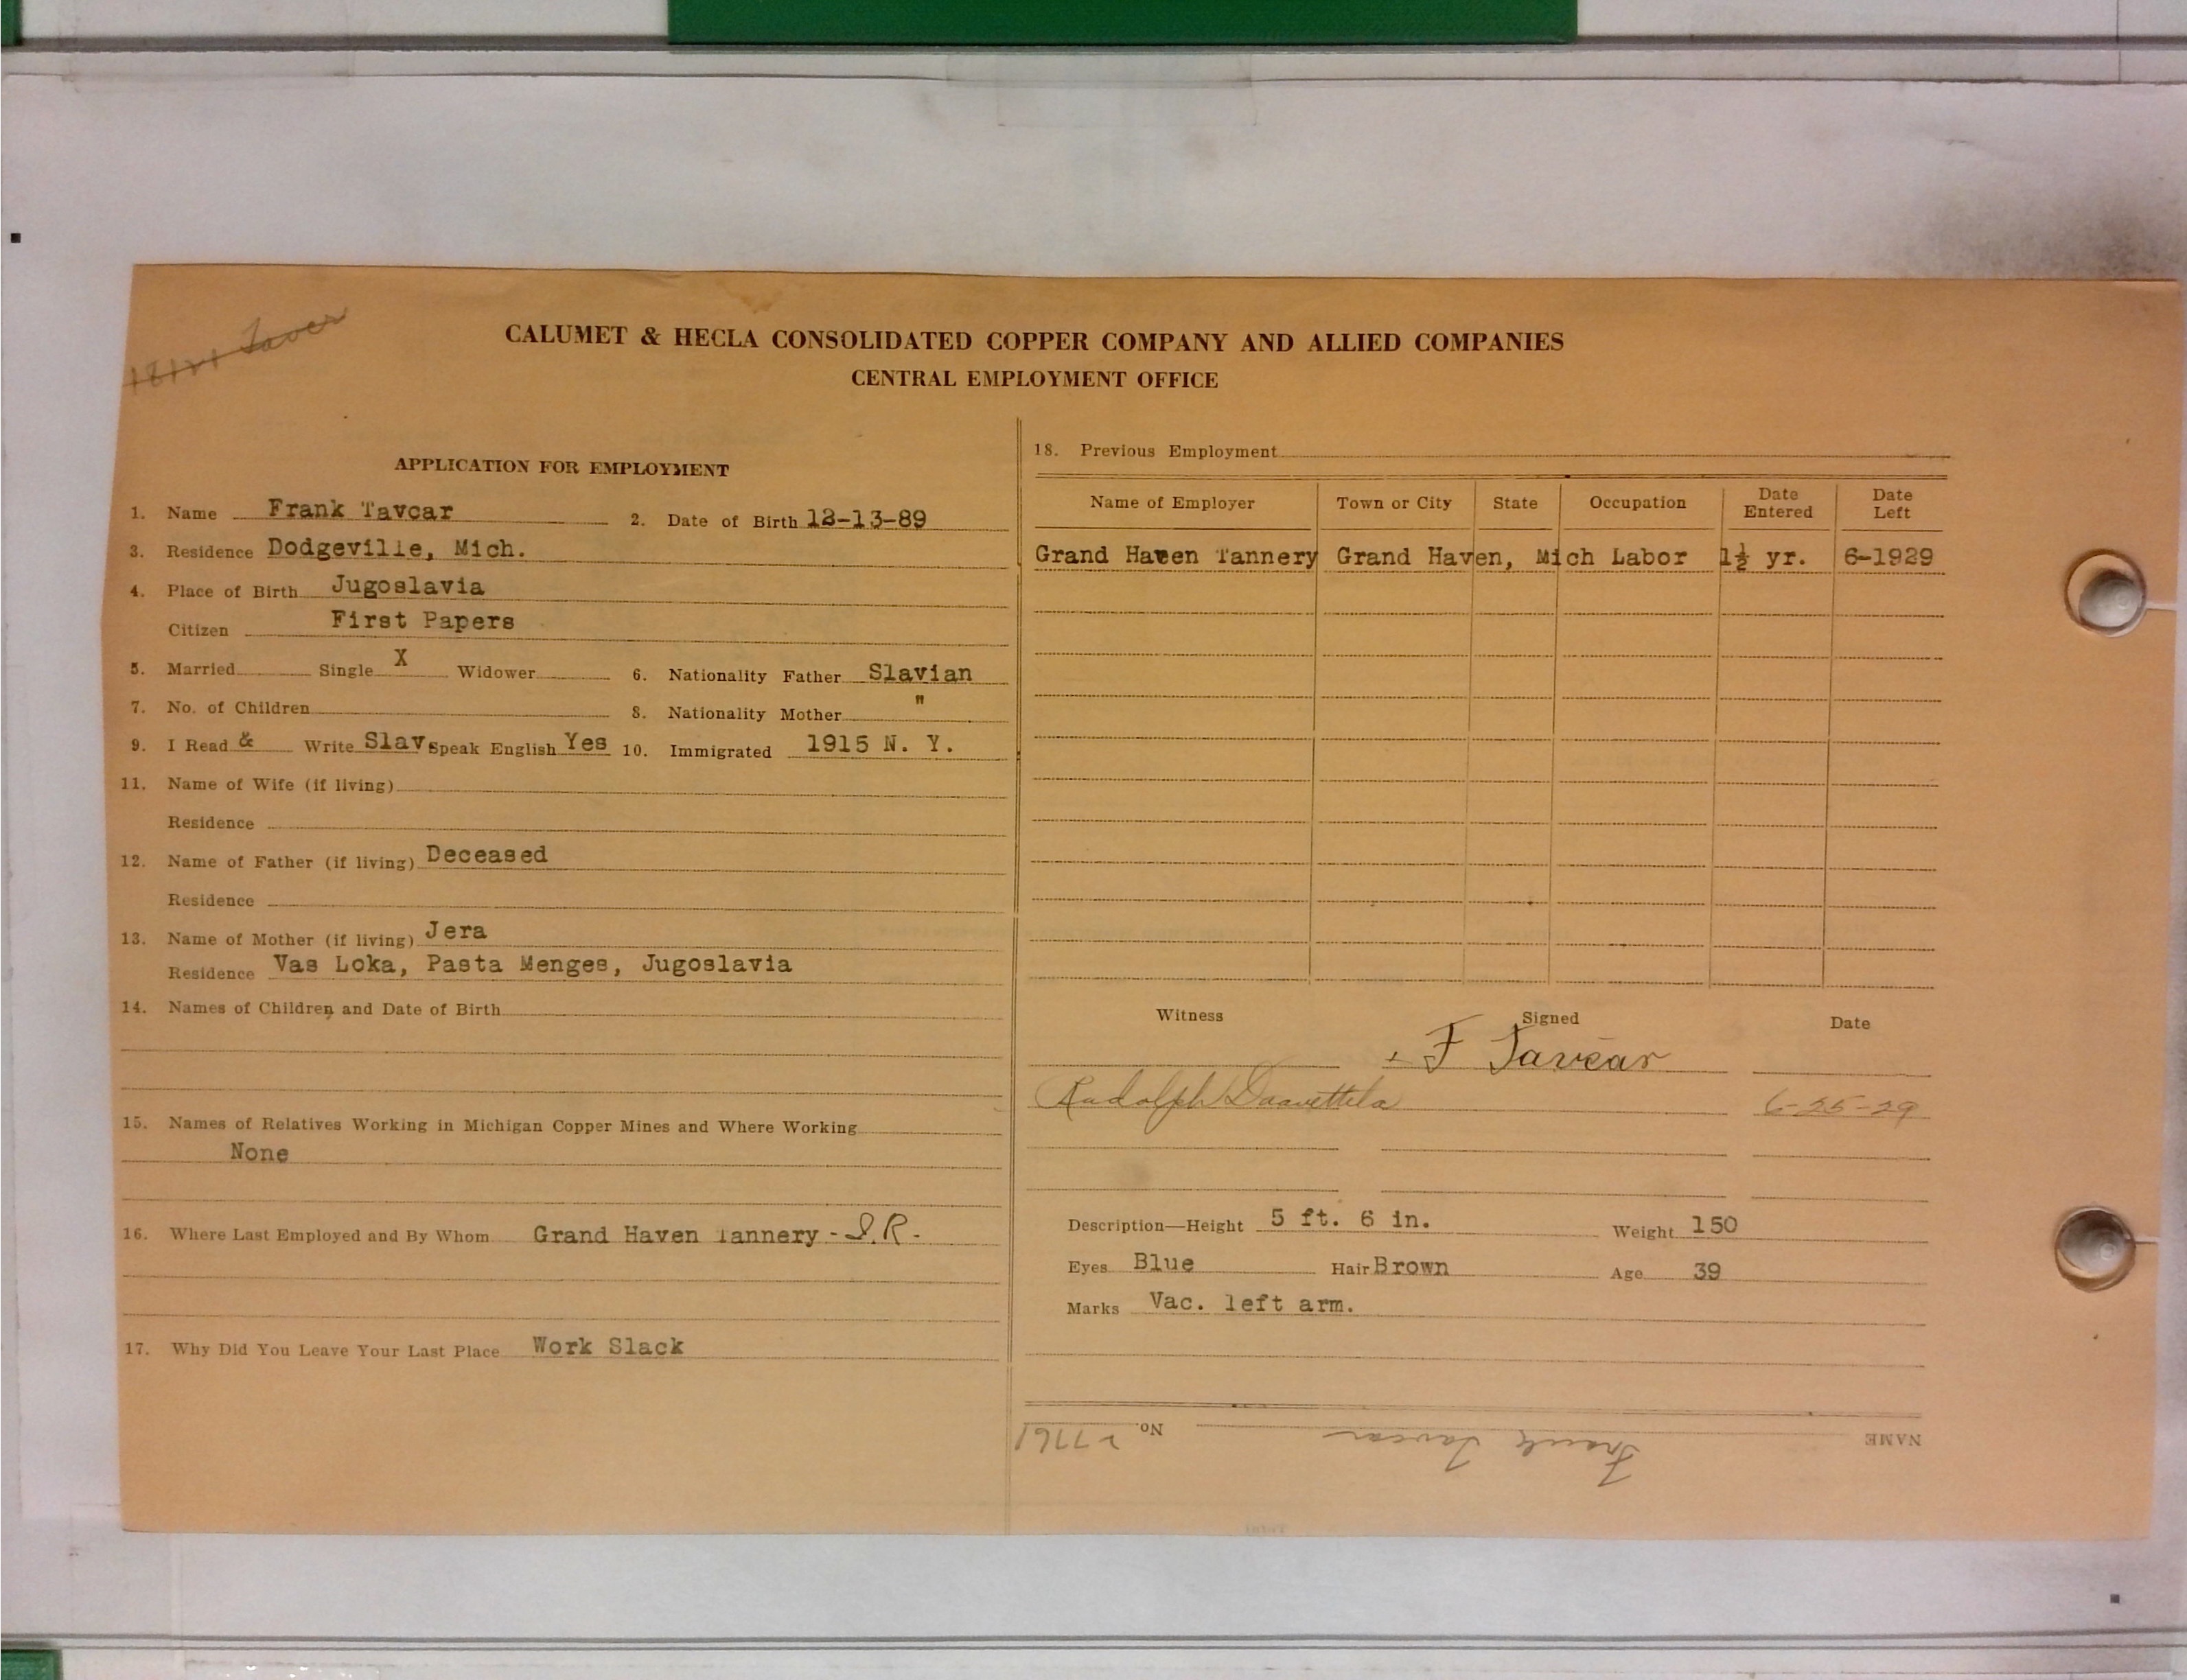 Taver
CALUMET & HECLA CONSOLIDATED COPPER COMPANY AND ALLIED COMPANIES
CENTRAL EMPLOYMENT OFFICE
APPLICATION FOR EMPLOYMENT
1. Name Frank Tavcar 2. Date of Birth 12-13-89
3. Residence Dodgeville, Mich.
4. Place of Birth Jugoslavia
Citizen First Papers
5. Married Single X Widower 6. Nationality Father Slavian
7. No. of Children 8. Nationality Mother "
9. I Read & Write Slav Speak English Yes 10. Immigrated 1915 N. Y.
11. Name of Wife (if living)
Residence
12. Name of Father (if living) Deceased
Residence
13. Name of Mother (if living) Jera
Residence Vas Loka, Pasta Menges, Jugoslavia
14. Names of Children and Date of Birth
15. Names of Relatives Working in Michigan Copper Mines and Where Working
None
16. Where Last Employed and By Whom Grand Haven Tannery - S.R.
17. Why Did You Leave Your Last Place Work Slack
18. Previous Employment
Name of Employer Town or City State Occupation Date Entered Date Left
Grand Haven Tannery Grand Haven, Mich Labor 1½ yr. 6-1929
Witness Signed Date
F Tavčar
Rudolph 6-25-29
Description—Height 5 ft. 6 in. Weight 150
Eyes Blue Hair Brown Age 39
Marks Vac. left arm.
NAME Frank Tavcar No. 27761